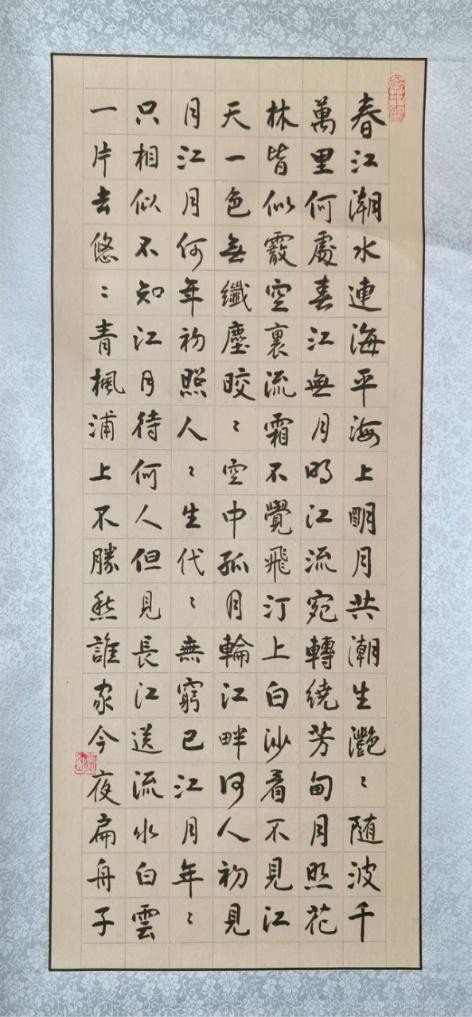 春江潮水連海平海上明月共潮生灧〻随波千
萬里何處春江無月明江流宛轉繞芳甸月照花
林皆似霰空裏流霜不覺飛汀上白沙看不見江
天一色無纖塵皎〻空中孤月輪江畔何人初見
月江月何年初照人〻生代〻無窮已江月年〻
只相似不知江月待何人但見長江送流水白雲
一片去悠〻青楓浦上不勝愁誰家今夜扁舟子